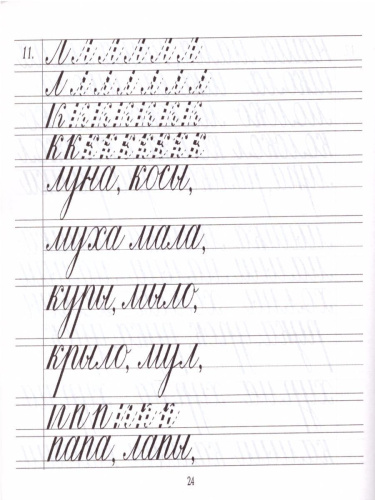 11. л л л л л л л
л л л л л л л
к к к к к к к
к к к к к к к
луна, косы,
муха мала,
куры, мыло,
крыло, мул,
п п п п п п
папа, лапы,
24